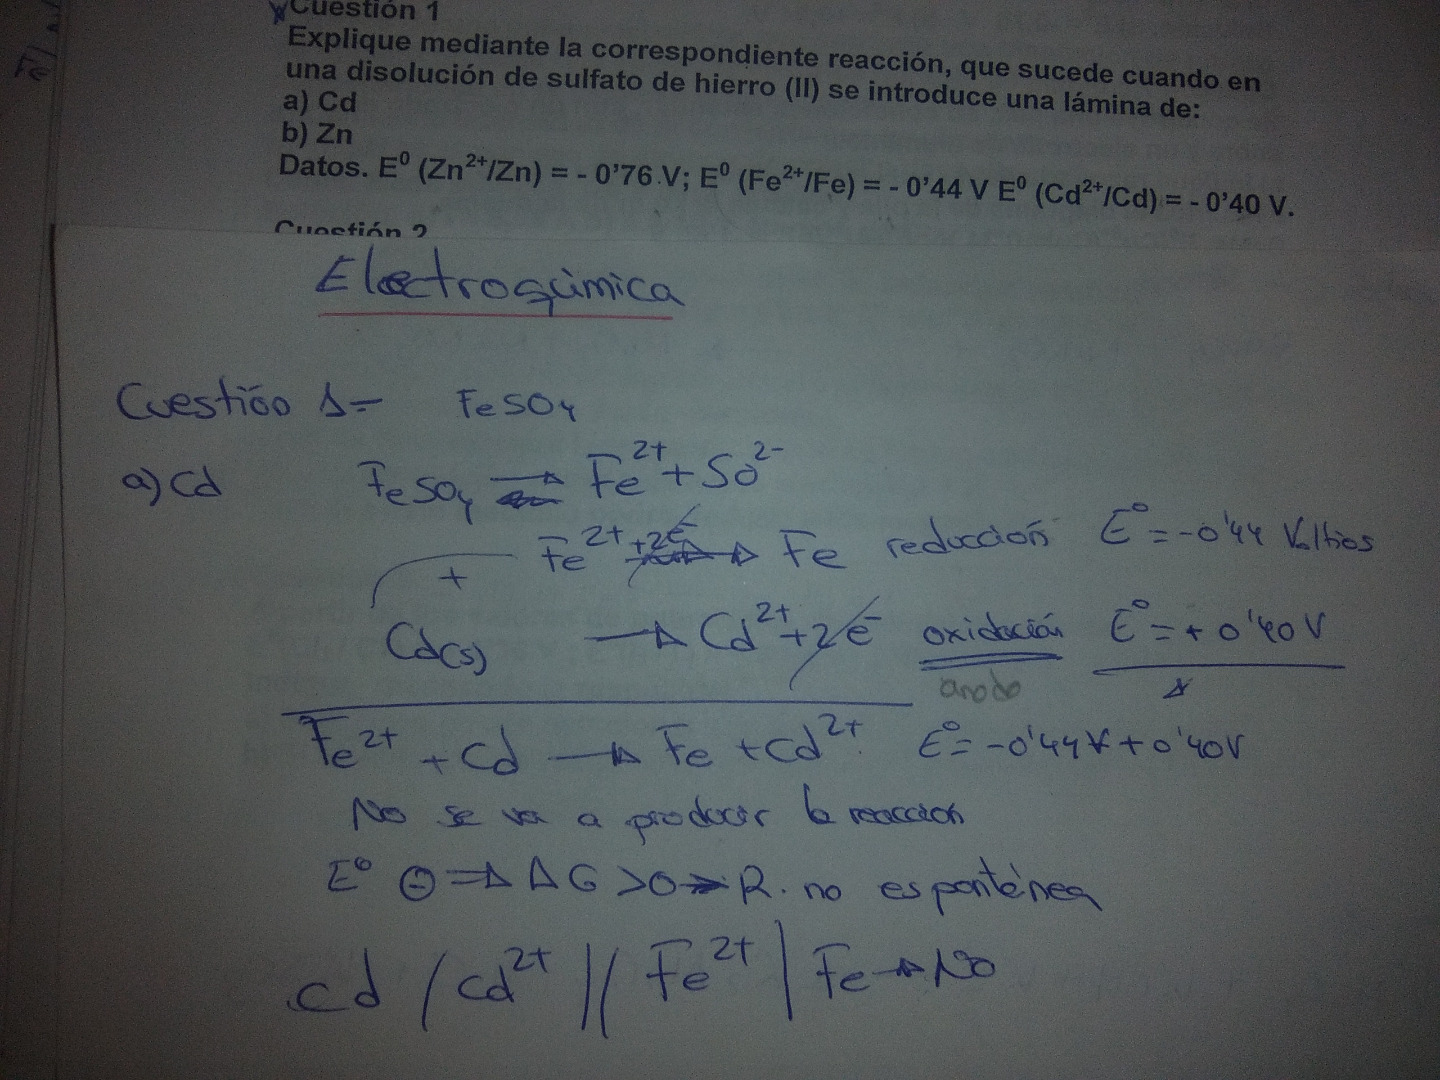 Cuestión 1
Explique mediante la correspondiente reacción, que sucede cuando en
una disolución de sulfato de hierro (II) se introduce una lámina de:
a) Cd
b) Zn
Datos. E⁰ (Zn²⁺/Zn) = - 0'76 V; E⁰ (Fe²⁺/Fe) = - 0'44 V E⁰ (Cd²⁺/Cd) = - 0'40 V.
Cuestión 2
Fe
Electroquimica
Cuestión 1= FeSO₄
a) Cd FeSO₄ ⇌ Fe²⁺ + SO²⁻
Fe²⁺ +2e⁻ → Fe reducción E⁰ = -0'44 Voltios
+
Cd(s) → Cd²⁺ + 2e⁻ oxidación E⁰ = + 0'40 V
anodo
Fe²⁺ + Cd → Fe + Cd²⁺ E⁰ = -0'44V + 0'40V
No se va a producir la reacción
E⁰ ⊖ ⇒ ΔG > 0 → R. no espontánea
Cd / Cd²⁺ || Fe²⁺ | Fe → No